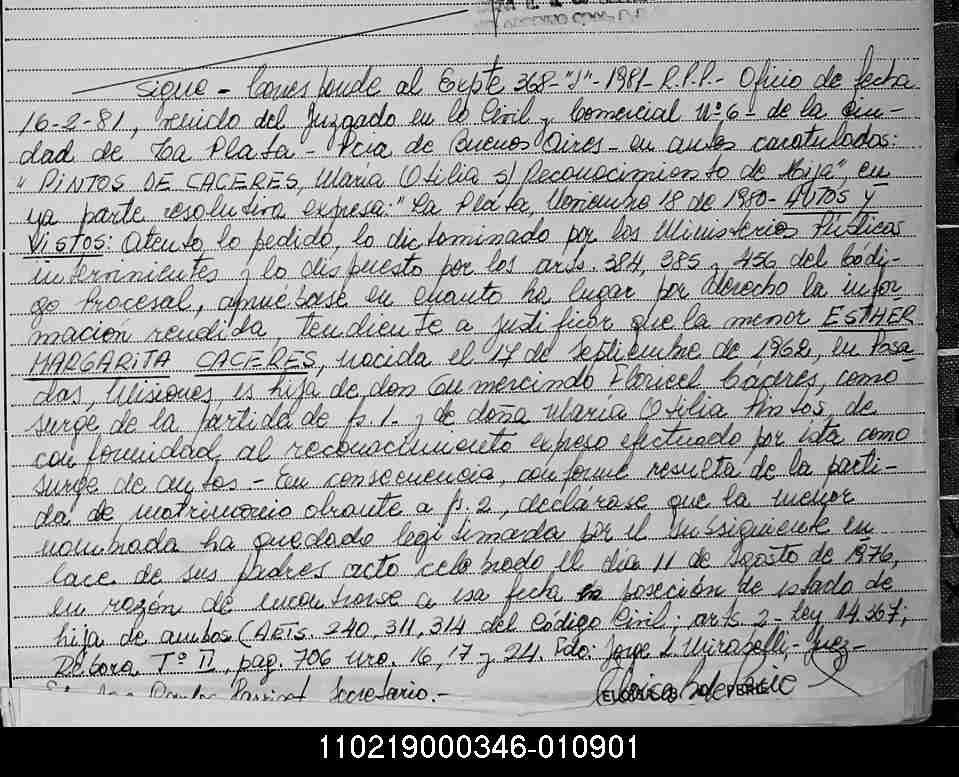 sigue - Corresponde al Expte 368-"J"-1981- R.P.P.- Oficio de fecha
16-2-81, venido del Juzgado en lo Civil y Comercial Nº 6 - de la ciu-
dad de La Plata - Pcia de Buenos Aires - en autos caratulados:
"PINTOS DE CACERES, Maria Otilia s/ Reconocimiento de Hija", cu-
ya parte resolutiva expresa: "La Plata, Noviembre 18 de 1980- AUTOS Y
VISTOS: Atento lo pedido, lo dictaminado por los Ministerios Públicos
intervinientes y lo dispuesto por los arts. 384, 385 y 456 del Códi-
go Procesal, apruébase en cuanto ha lugar por derecho la infor-
mación rendida, tendiente a justificar que la menor ESTHER
MARGARITA CACERES, nacida el 17 de septiembre de 1962, en Posa-
das, Misiones, es hija de don Gumercindo Cáceres, como
surge de la partida de fs. 1. y de doña María Otilia Pintos, de
conformidad al reconocimiento expreso efectuado por ésta como
surge de autos.- En consecuencia, conforme resulta de la parti-
da de matrimonio obrante a fs. 2, declárase que la menor
nombrada ha quedado legitimada por el subsiguiente en
lace de sus padres acto celebrado el día 11 de Agosto de 1976,
en razón de encontrarse a esa fecha posesión de estado de
hija de ambos (Arts. 240, 311, 314 del Código Civil; arts. 2 - Ley 14.367;
Débora, Tº II, pag. 706 nro. 16, 17 y 24. Fdo: Jorge L. Mirabelli - Juez-
Secretario.-
110219000346-010901